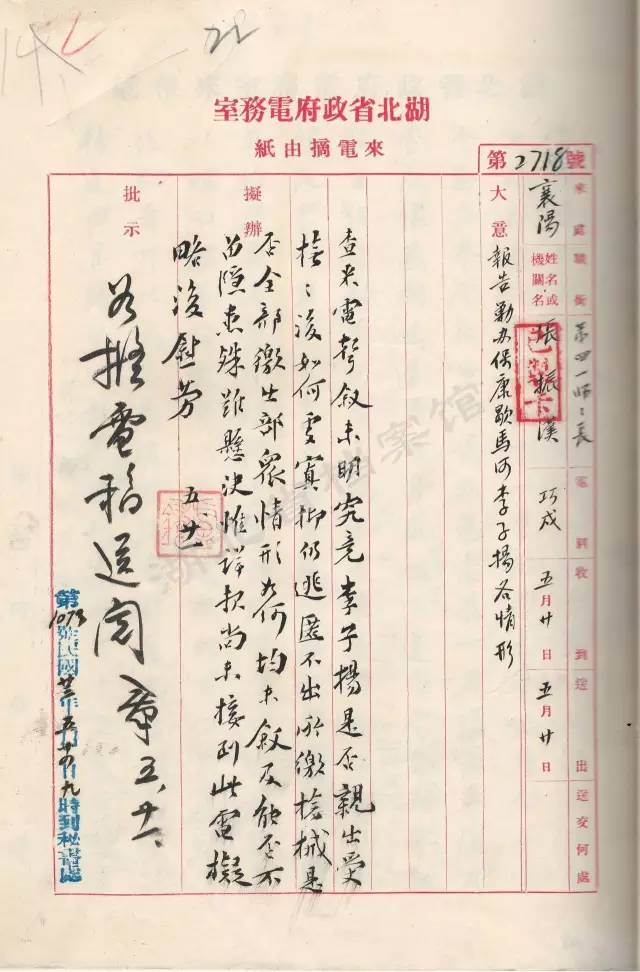 湖北省政府電務室
來電摘由紙
第2718號
來處 襄陽
職銜 第四一師師長
姓名或機關名 張振漢
電到 巧戌
收到 五月廿日
送出 五月廿日
送交何處
大意 報告勦办保康歇馬河李子揚各情形
擬辦
查來電聲叙未明究竟李子揚是否親出受
後如何安寘抑仍逃匿不出所繳槍械是
否全部繳出部眾情形如何均未叙及能否不
留隱患殊難懸決惟詳報尚未接到此電擬
略復慰勞 五、廿一
批示
擬電稿送閱 五、廿一
中華民國廿三年五月
時到秘書處
湖北省档案馆